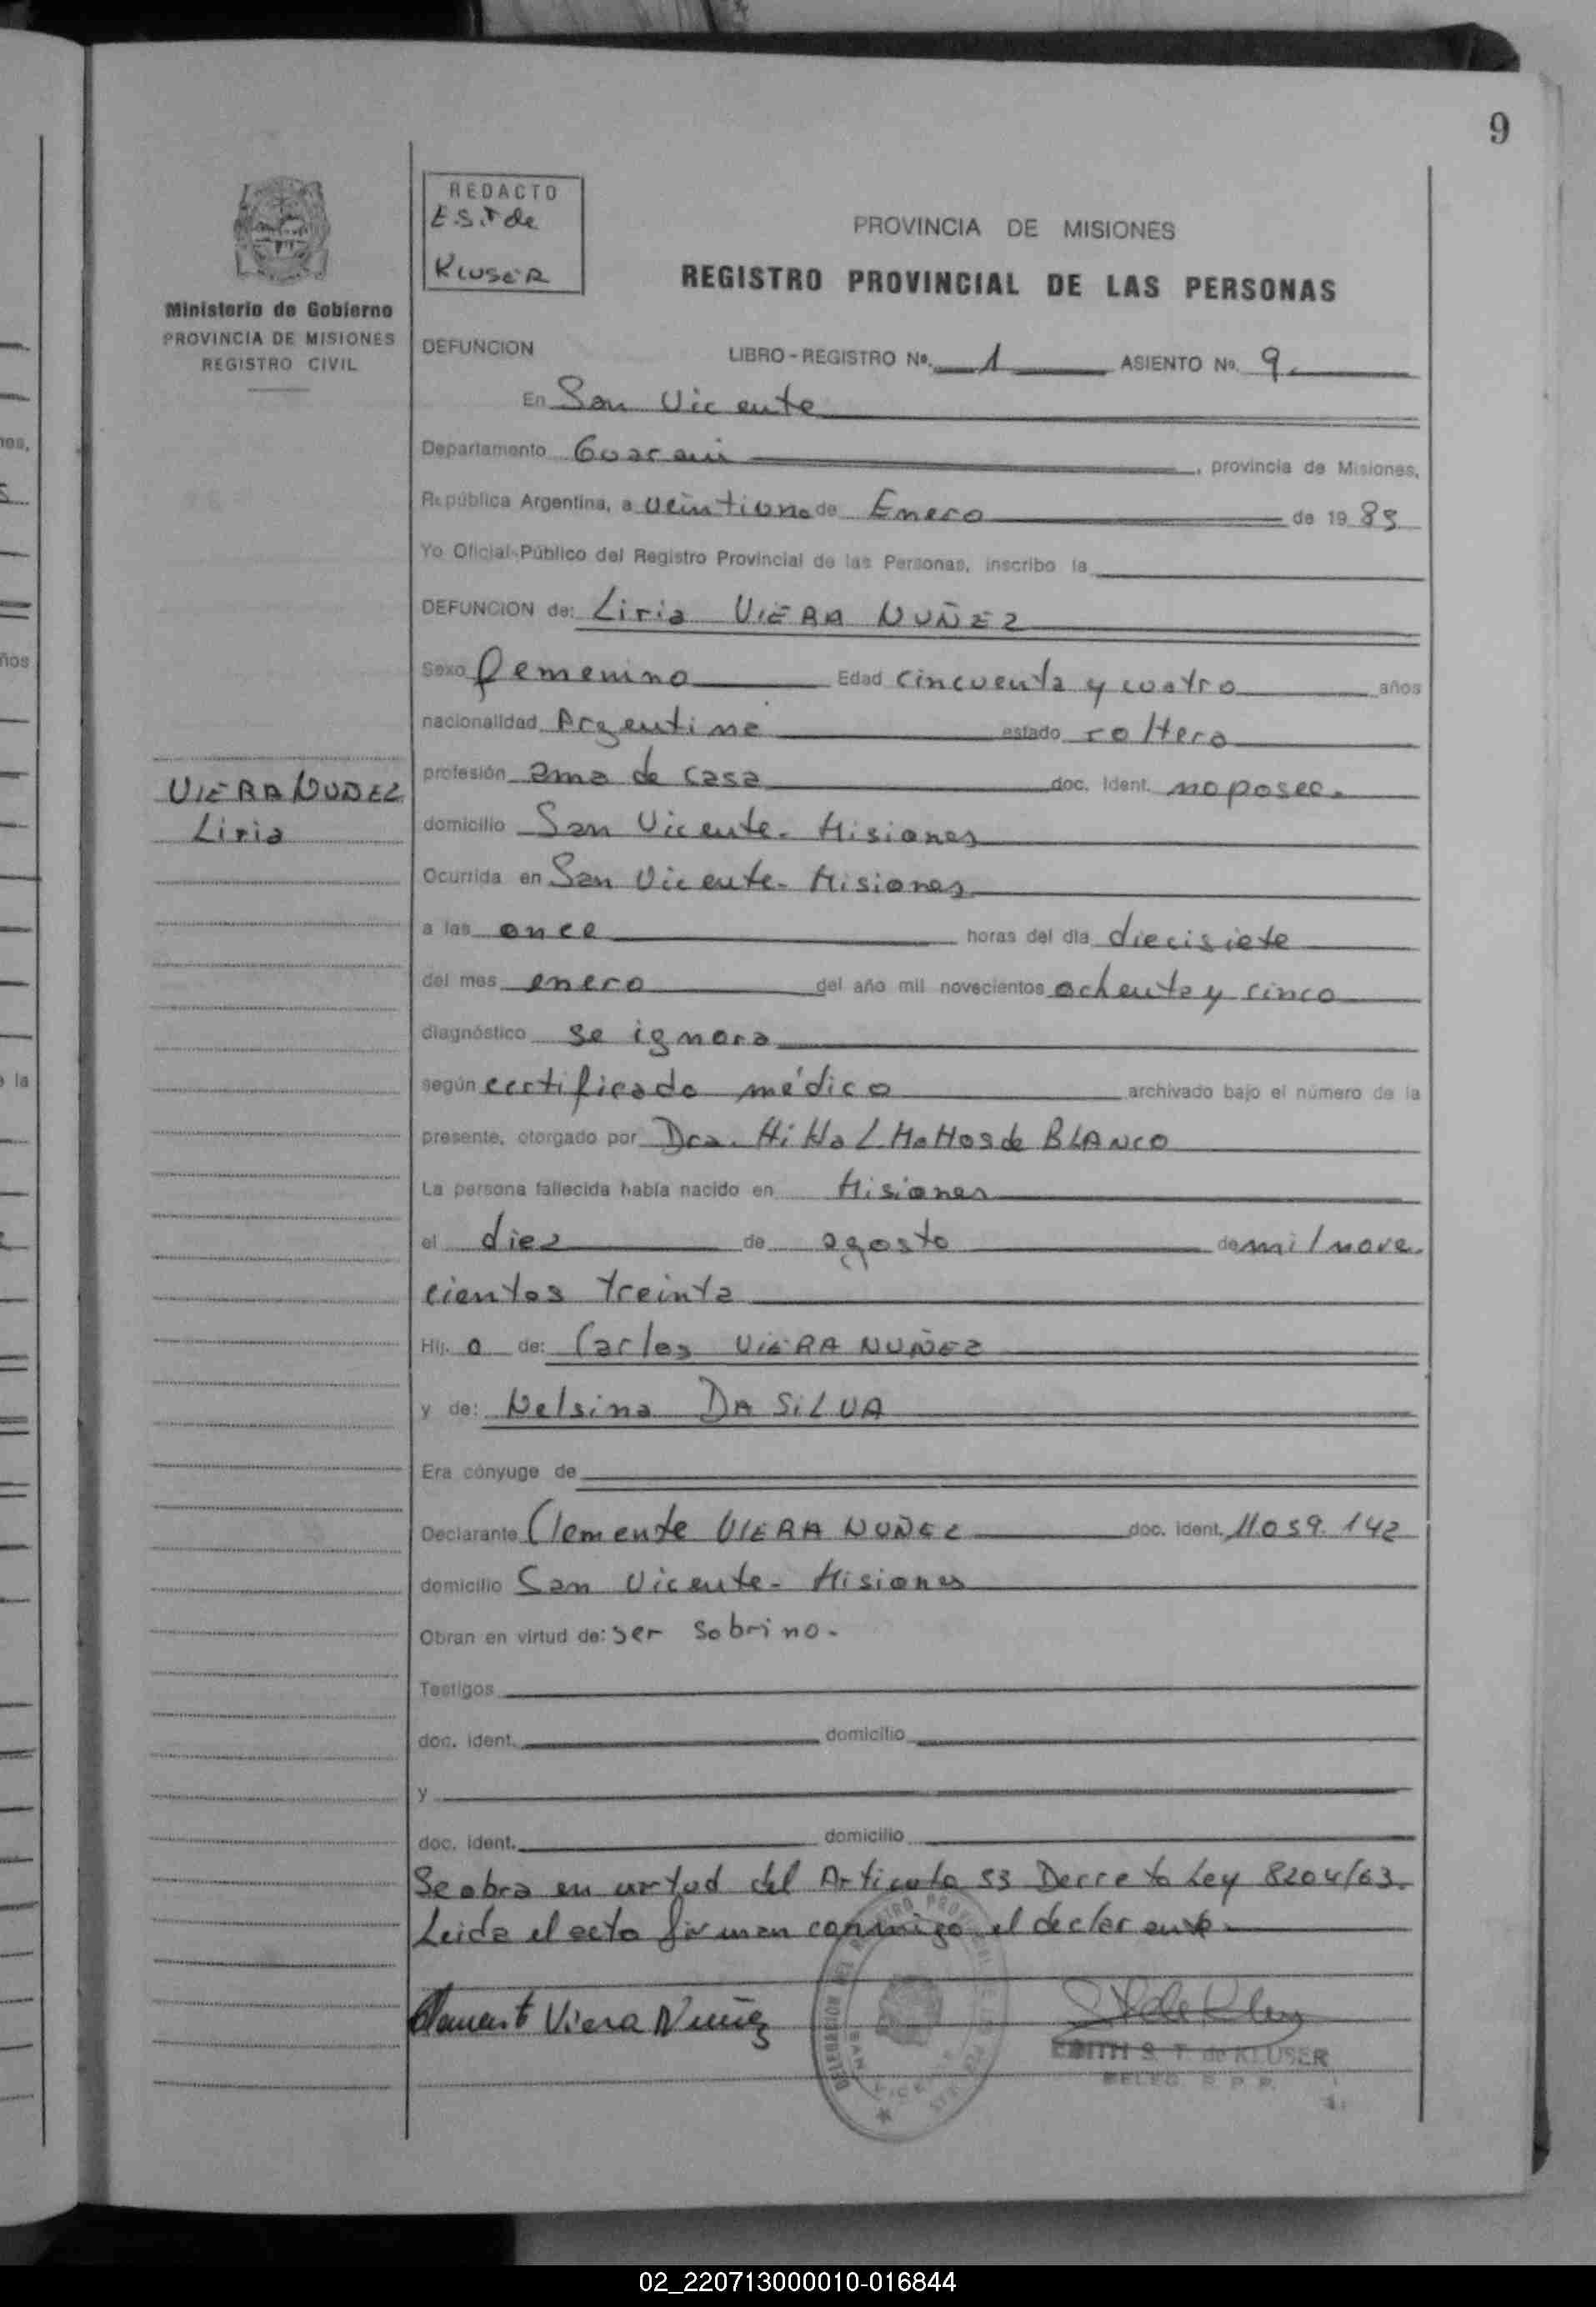 9
REDACTO
E.S.T de
KLUSER
PROVINCIA DE MISIONES
REGISTRO PROVINCIAL DE LAS PERSONAS
Ministerio de Gobierno
PROVINCIA DE MISIONES
REGISTRO CIVIL
DEFUNCION LIBRO-REGISTRO Nº. 1 ASIENTO Nº. 9.
En San Vicente
Departamento Guarani, provincia de Misiones,
República Argentina, a veintiuno de Enero de 1985
Yo Oficial Público del Registro Provincial de las Personas, inscribo la
DEFUNCION de: Liria VIERA NUÑEZ
Sexo femenino Edad cincuenta y cuatro años
nacionalidad Argentina estado soltera
VIERA NUÑEZ
Liria
profesión ama de casa doc. ident. no posee.
domicilio San Vicente - Misiones
Ocurrida en San Vicente - Misiones
a las once horas del dia diecisiete
del mes enero del año mil novecientos ochenta y cinco
diagnóstico se ignora
según certificado médico archivado bajo el número de la
presente, otorgado por Dra. de BLANCO
La persona fallecida había nacido en Misiones
el diez de agosto de mil nove
cientos treinta
Hij. a de: Carlos VIERA NUÑEZ
y de: Nelsina DA SILVA
Era cónyuge de
Declarante Clemente VIERA NUÑEZ doc. ident. 11059.142
domicilio San Vicente - Misiones
Obran en virtud de: ser sobrino.
Testigos
doc. ident. domicilio
y
doc. ident. domicilio
Se obra en virtud del Articulo 53 Decreto Ley 8204/63.
Leida el acta firman conmigo el declarante.
Clement Viera Nuñez
EDITH S. T. de KLUSER
02_220713000010-016844